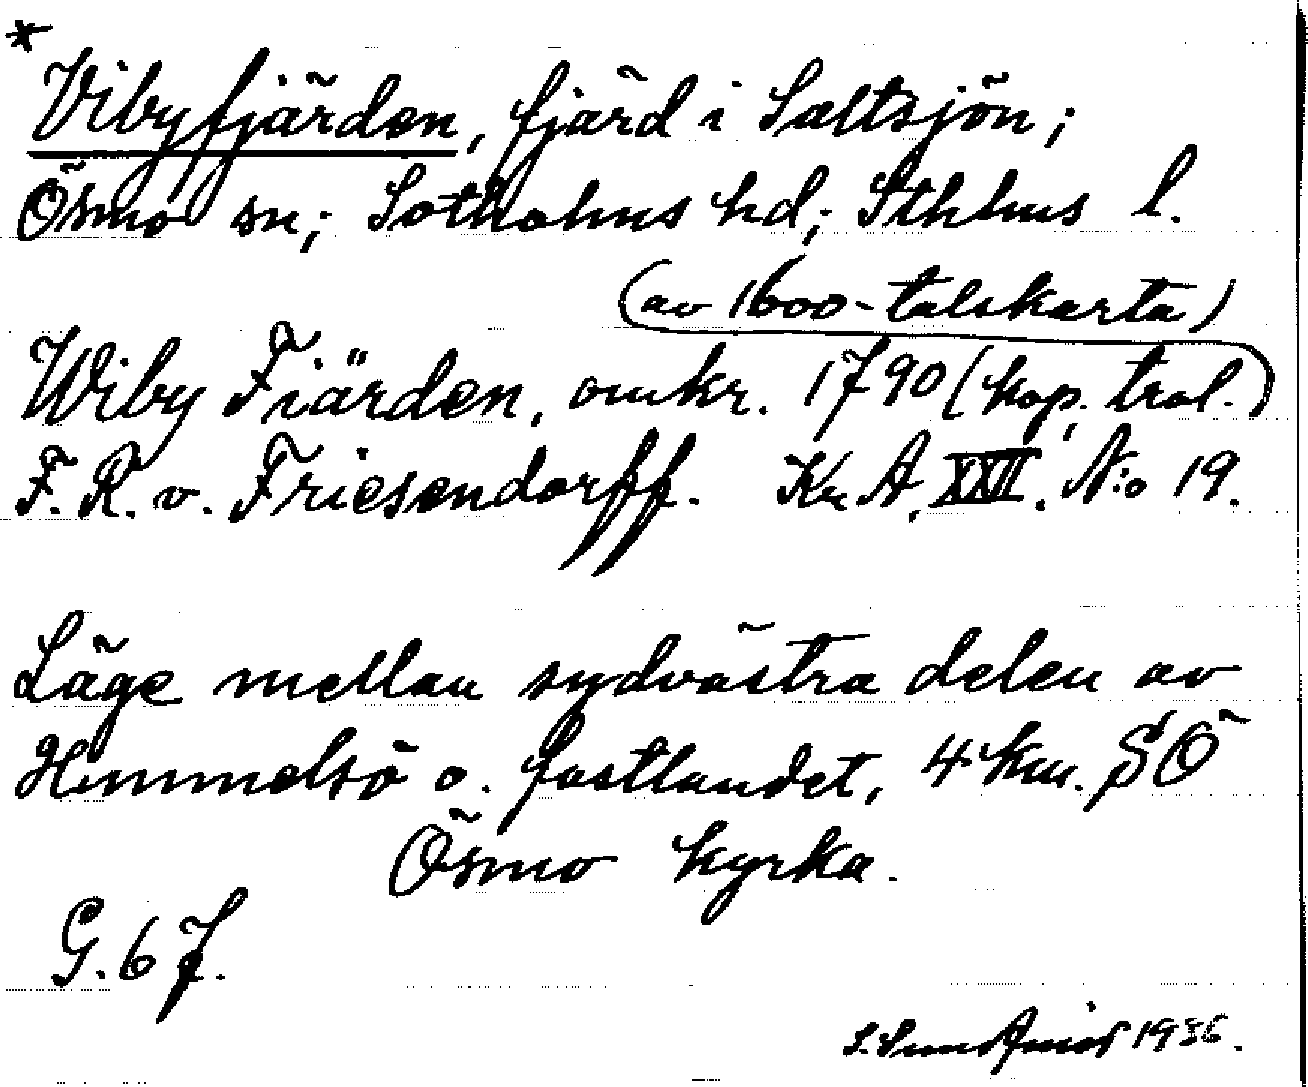 * Vibyfjärden, fjärd i Saltsjön;
Ösmo sn; Sotholms hd; Sthlms l.
(av 1600-talskarta)
Wiby Fiärden, omkr. 1790 (kop. trol.)
F. R. v. Friesendorff. Kr. A. XXII. N:o 19.
Läge mellan sydvästra delen av
Himmelsö o. fastlandet, 4 km. SÖ
Ösmo kyrka.
G. 67.
1936.